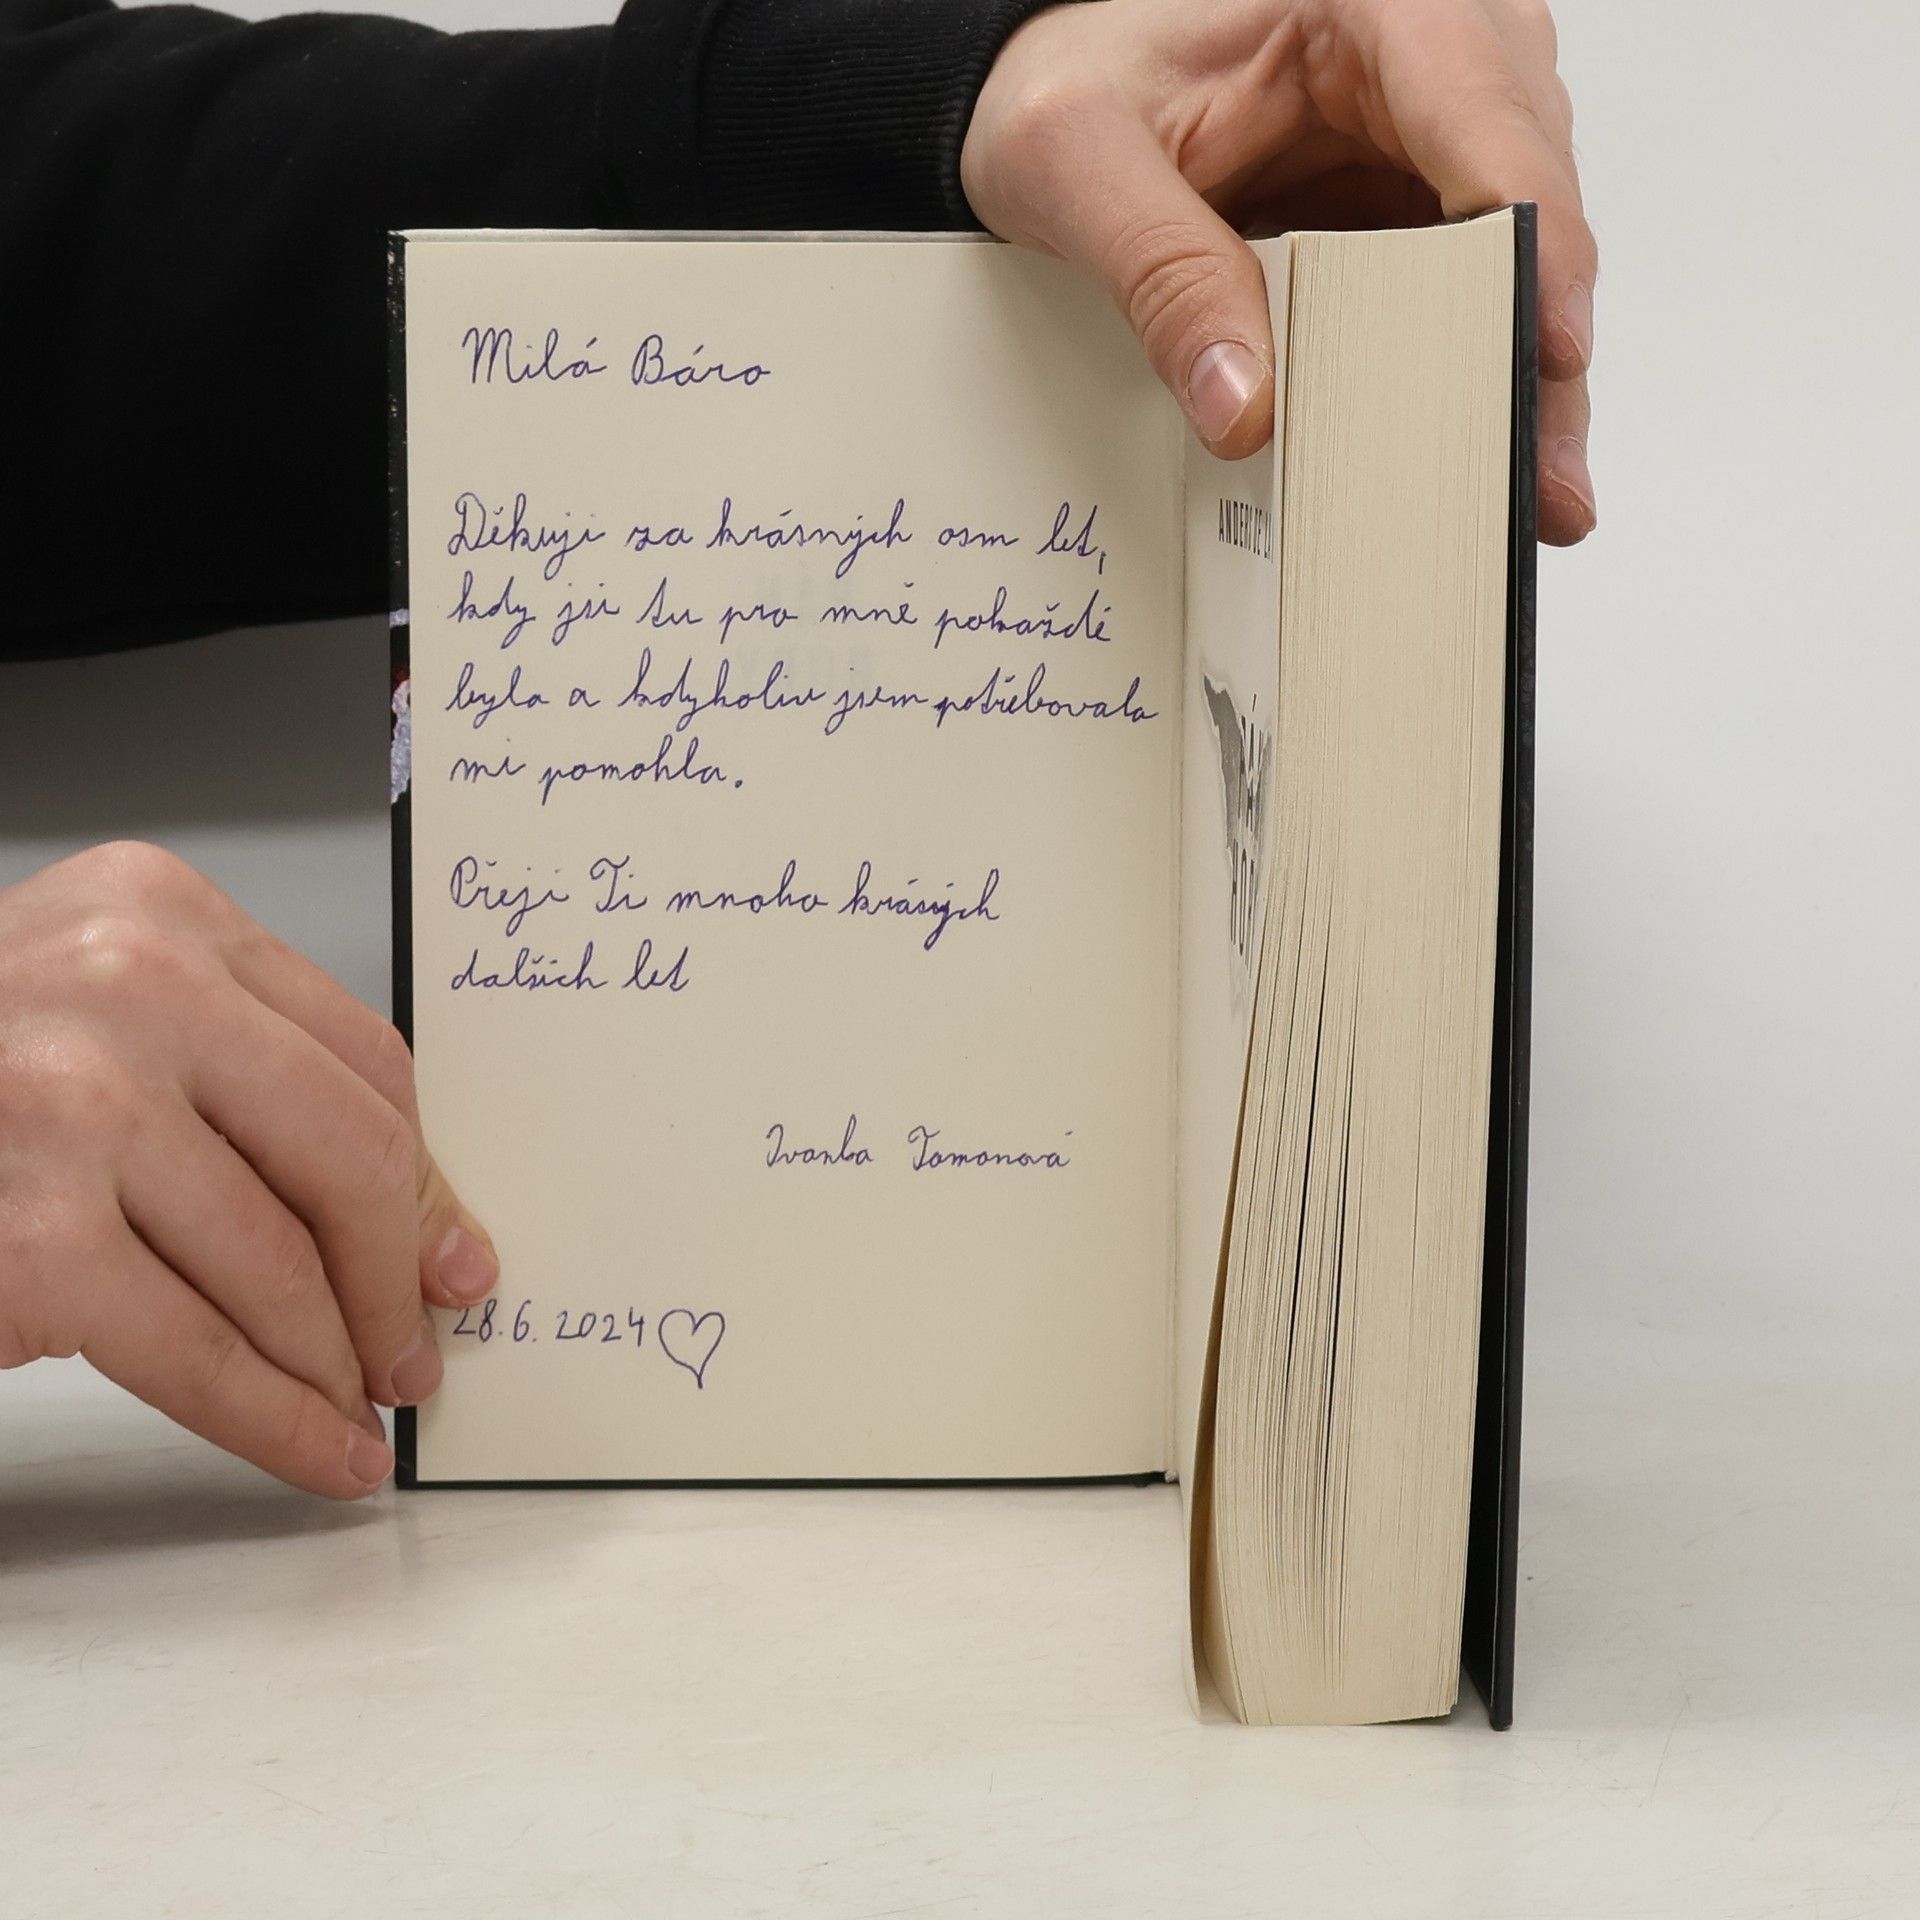 Milá Báro
Děkuji za krásných osm let,
kdy jsi tu pro mně pokaždé
byla a kdykoliv jsem potřebovala
mi pomohla.
Přeji Ti mnoho krásných
dalších let
Ivanka Tomanová
28.6. 2024
ANDERS DE L
PÁN
HOR